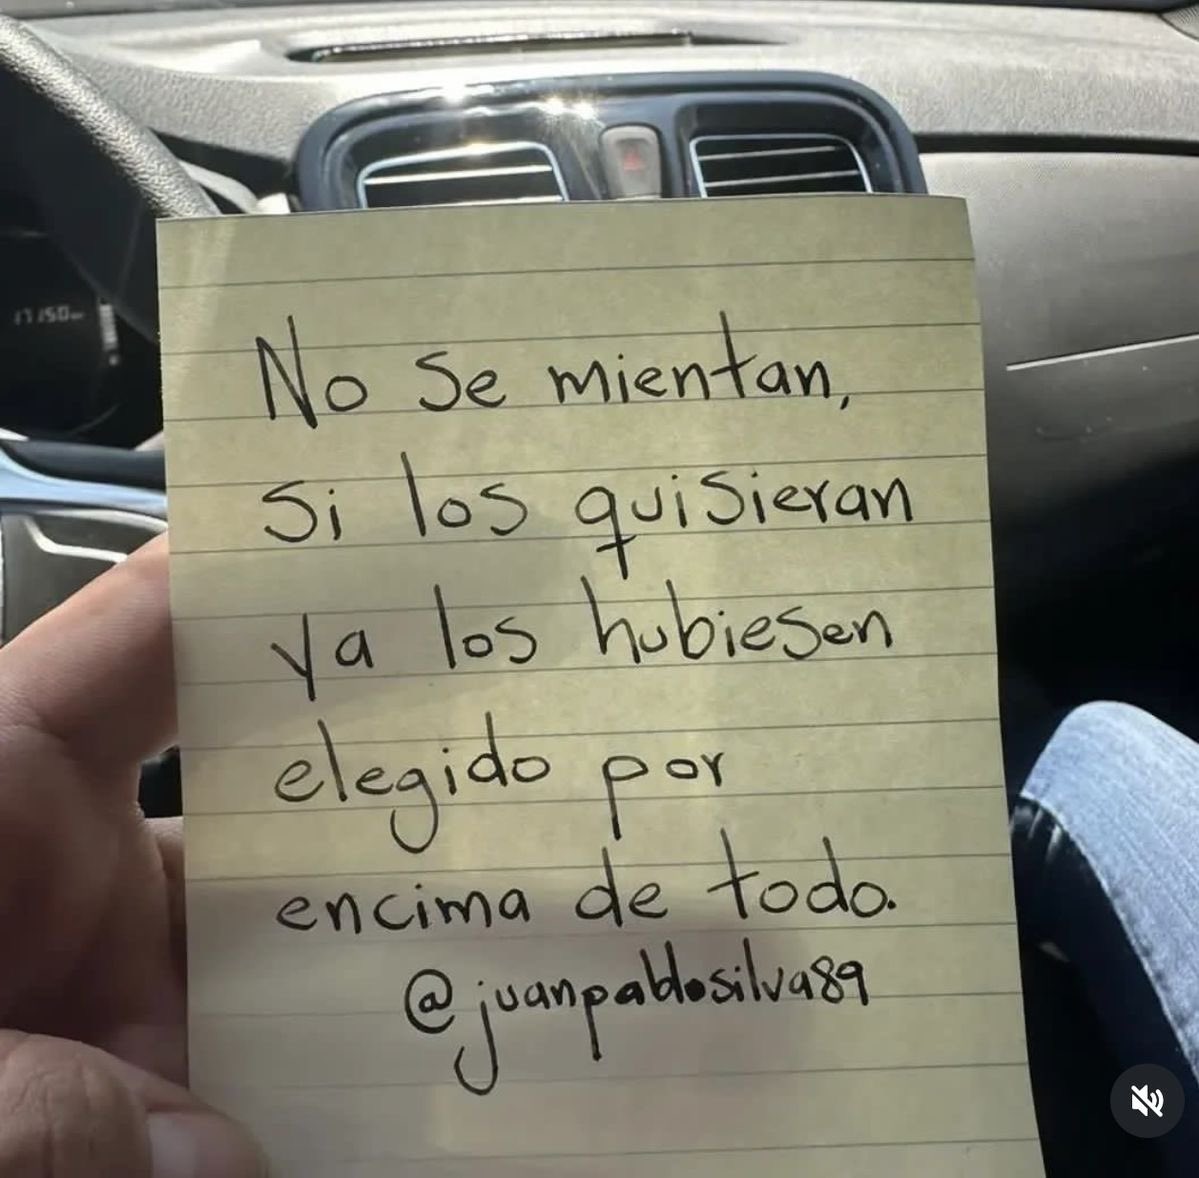 No se mientan,
si los quisieran
ya los hubiesen
elegido por
encima de todo.
@juanpablosilva89